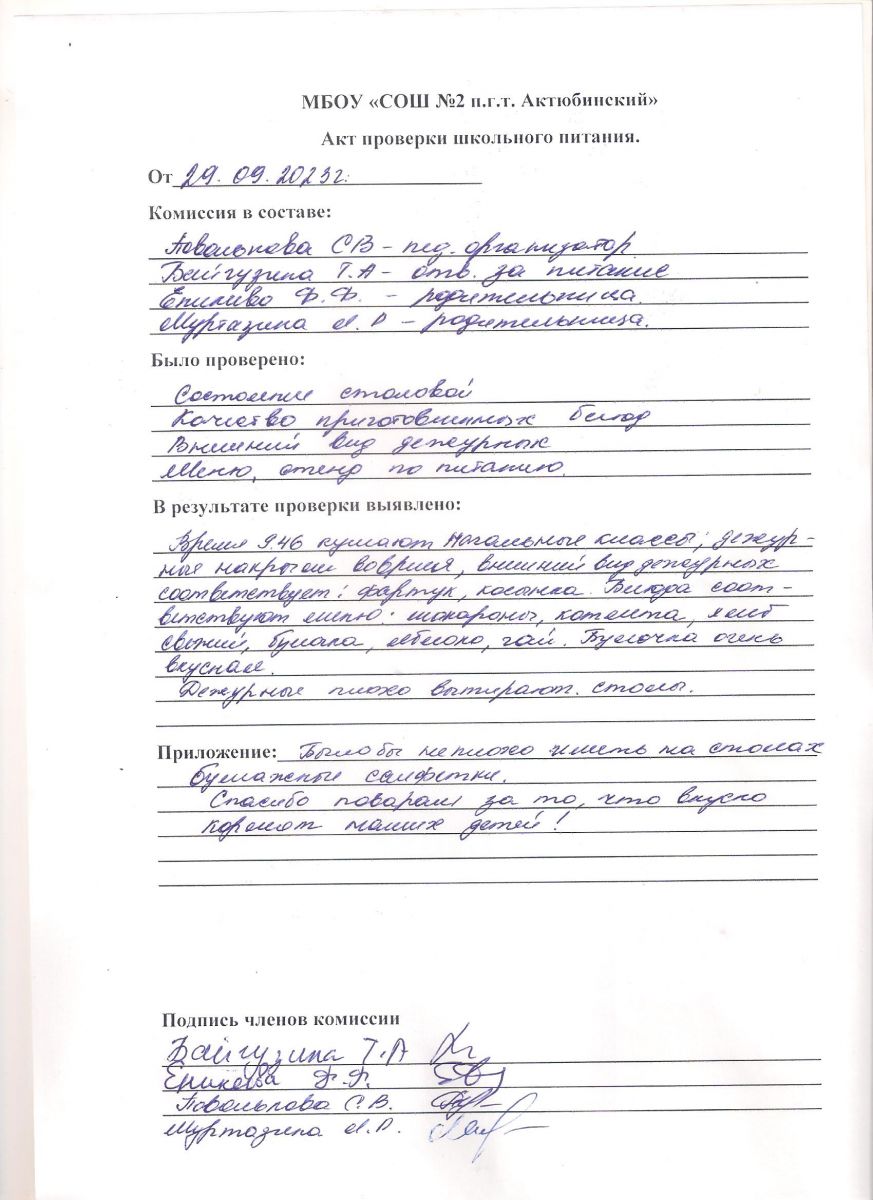 МБОУ «СОШ №2 п.г.т. Актюбинский»
Акт проверки школьного питания.
От 29. 09. 2023г.
Комиссия в составе:
Повалькова С В – пед. организатор
Байгузина Т. А – отв. за питание
Еникеева Ф. Ф. – родительница.
Муртазина Л. Р – родительница.
Было проверено:
Состояние столовой
Качество приготовленных блюд
Внешний вид дежурных
Меню, стенд по питанию.
В результате проверки выявлено:
Время 9.46 кушают Начальные классы; дежур-
ные накрыли вовремя, внешний вид дежурных
соответствует: фартук, косынка. Блюда соот-
ветствуют меню: макароны, котлета, хлеб
свежий, булочка, яблоко, чай. Булочка очень
вкусная.
Дежурные плохо вытирают столы.
Приложение: Было бы неплохо иметь на столах
бумажные салфетки.
Спасибо поварам за то, что вкусно
кормят наших детей!
Подпись членов комиссии
Байгузина Т. А
Еникеева Ф. Ф.
Повалькова С. В.
Муртазина Л. Р.